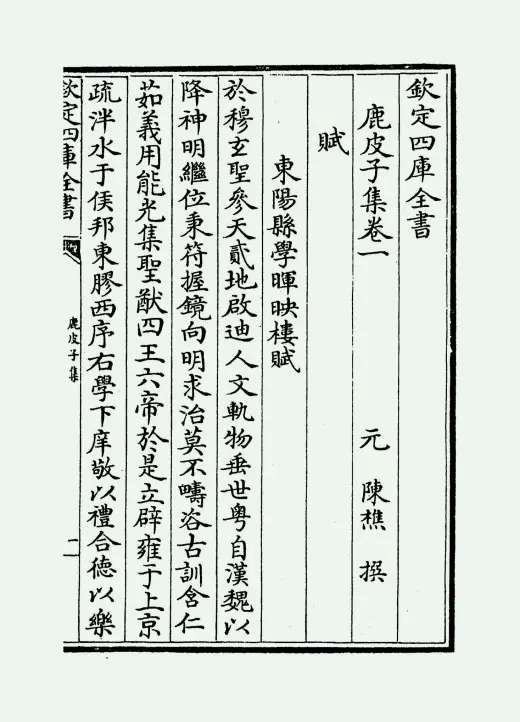 欽定四庫全書
鹿皮子集卷一
元 陳樵 撰
賦
東陽縣學暉映樓賦
於穆玄聖參天貳地啟迪人文軌物垂世粵自漢魏以
降神明繼位秉符握鏡向明求治莫不疇咨古訓含仁
茹義用能光集聖猷四王六帝於是立辟雍于上京
疏泮水于侯邦東膠西序右學下庠敬以禮合德以樂
欽定四庫全書
鹿皮子集
一